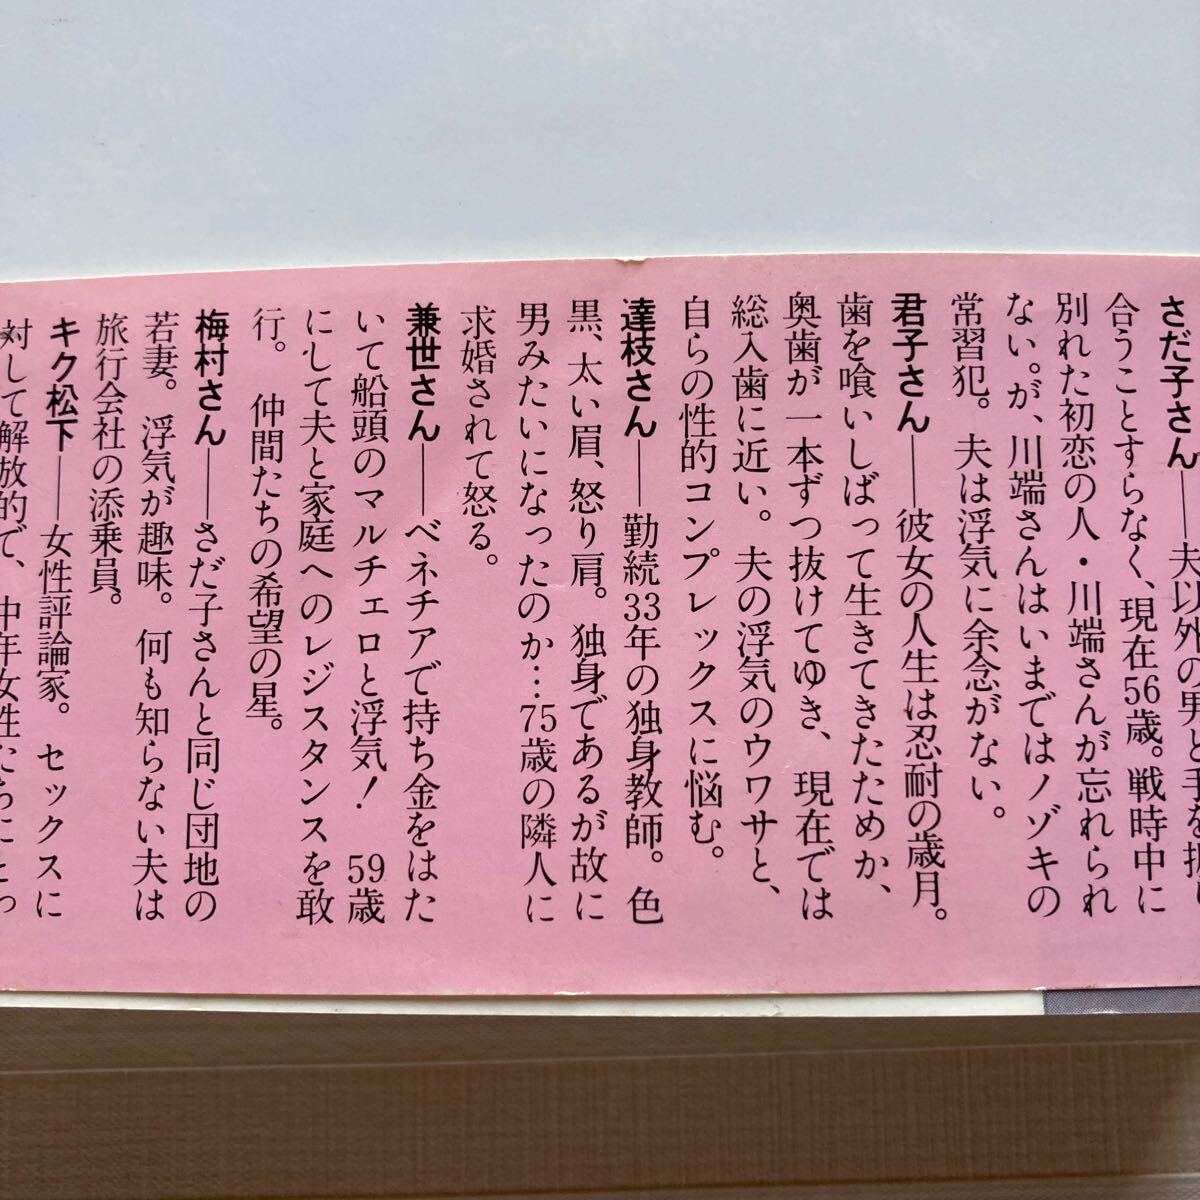 さだ子さん——夫以外の男と手を握り
合うことすらなく、現在56歳。戦時中に
別れた初恋の人・川端さんが忘れられ
ない。が、川端さんはいまではノゾキの
常習犯。夫は浮気に余念がない。
君子さん——彼女の人生は忍耐の歳月。
歯を喰いしばって生きてきたためか、
奥歯が一本ずつ抜けてゆき、現在では
総入歯に近い。夫の浮気のウワサと、
自らの性的コンプレックスに悩む。
達枝さん——勤続33年の独身教師。色
黒、太い眉、怒り肩。独身であるが故に
男みたいになったのか…75歳の隣人に
求婚されて怒る。
兼世さん——ベネチアで持ち金をはた
いて船頭のマルチェロと浮気！59歳
にして夫と家庭へのレジスタンスを敢
行。仲間たちの希望の星。
梅村さん——さだ子さんと同じ団地の
若妻。浮気が趣味。何も知らない夫は
旅行会社の添乗員。
キク松下——女性評論家。セックスに
対して解放的で、中年女性たちにとっ